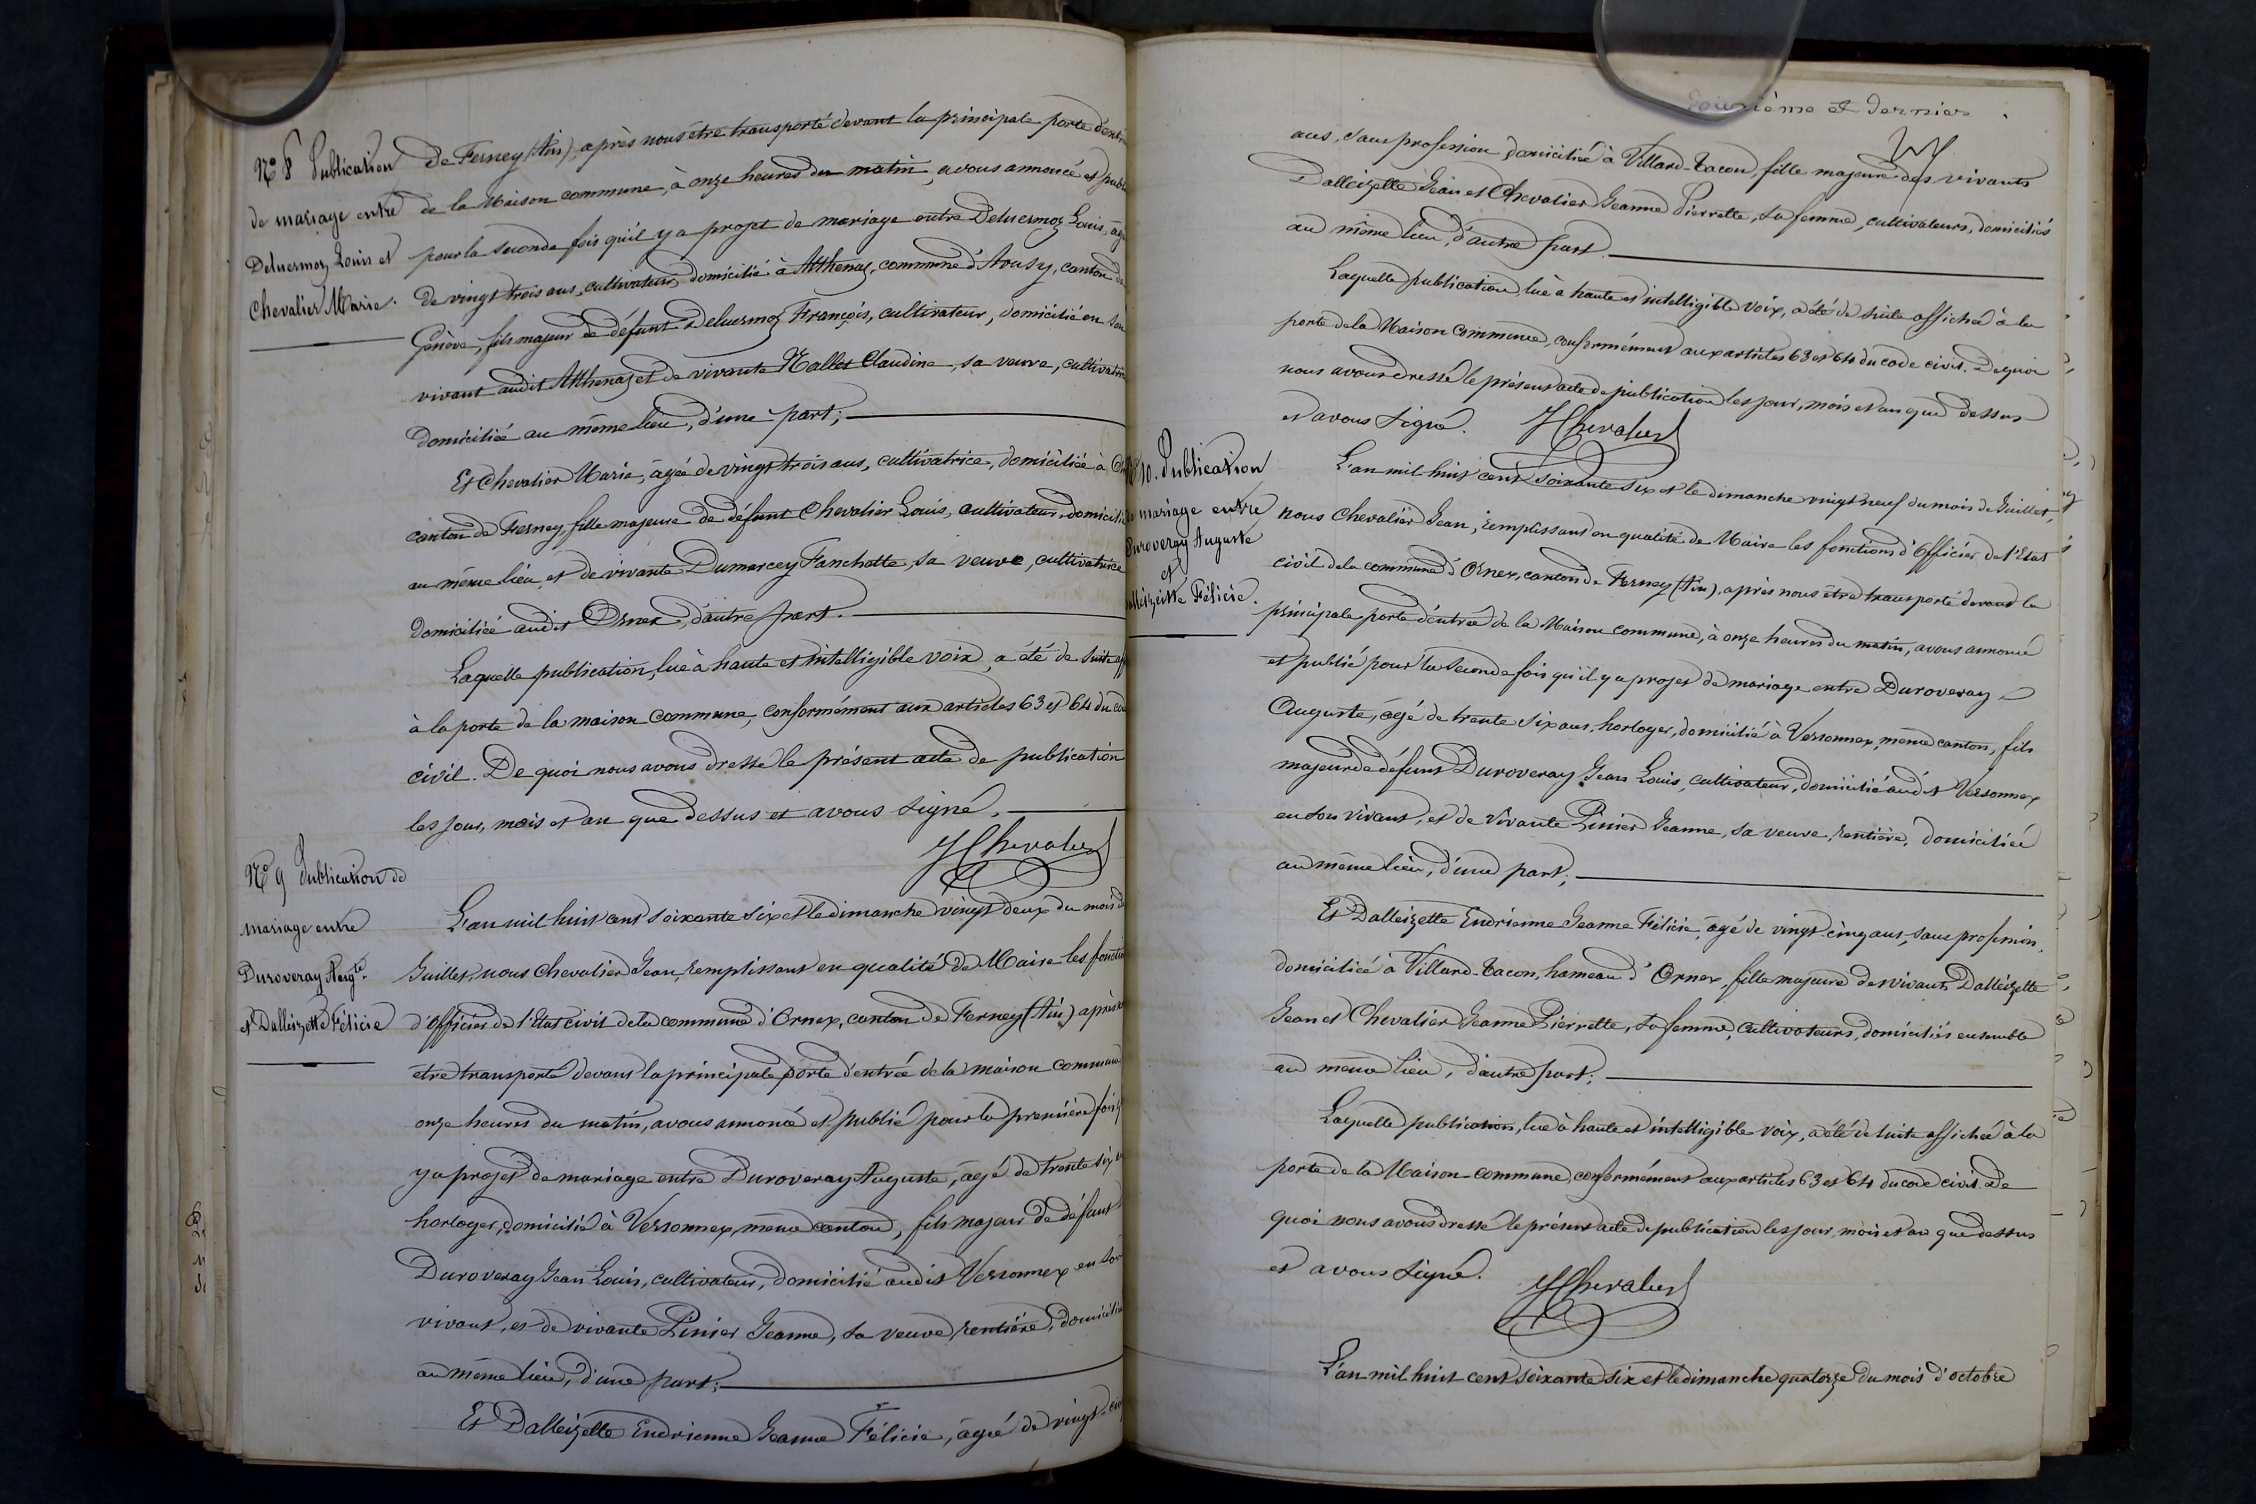 No 8 Publication
de mariage entre
Deluermoz Louis et
Chevalier Marie.
de Ferney (Ain), après nous être transporté devant la principale porte d'entr
de la Maison commune, à onze heures du matin, avons annoncé et publ
pour la seconde fois qu'il y a projet de mariage entre Deluermoz Louis, âg
de vingt trois ans, cultivateur, domicilié à Atthenaz, commune d'Avusy, canton de
Genève, fils majeur de défunt Deluermoz François, cultivateur, domicilié en son
vivant audit Atthenaz et de vivante Mallet Claudine, sa veuve, cultivatri
domiciliée au même lieu, d'une part;
Et Chevalier Marie, âgée de vingt trois ans, cultivatrice, domiciliée à
canton de Ferney, fille majeure de défunt Chevalier Louis, cultivateur, domicili
au même lieu, et de vivante Dumarcey Fanchette, sa veuve, cultivatrice
domiciliée audit Ornex, d'autre part.
Laquelle publication, lue à haute et intelligible voix, a été de suite aff
à la porte de la maison commune, conformément aux articles 63 et 64 du co
civil. De quoi nous avons dressé le présent acte de publication
les jour, mois et an que dessus et avons signé.
J Chevalier
No 9 Publication de
mariage entre
Duroveray Augte.
et Dalleizette Félicie
L'an mil huit cent soixante six et le dimanche vingt deux du mois de
Juillet, nous Chevalier Jean, remplissant en qualité de Maire les foncti
d'officier de l'Etat civil de la commune d'Ornex, canton de Ferney (Ain) après
être transporté devant la principale porte d'entrée de la maison commune
onze heures du matin, avons annoncé et publié pour la première fois
y a projet de mariage entre Duroveray Auguste, âgé de trente six
horloger, domicilié à Versonnex, même canton, fils majeur de défunt
Duroveray Jean Louis, cultivateur, domicilié audit Versonnex en son
vivant, et de vivante Pinier Jeanne, sa veuve, rentière, domicilié
au même lieu, d'une part;
Et Dalleizette Endrienne Jeanne Félicie, âgée de vingt-cin
ième et dernier
ans, sans profession, domiciliée à Villard-Tacon, fille majeure des vivants
Dalleizette Jean et Chevalier Jeanne Pierrette, sa femme, cultivateurs, domiciliés
au même lieu, d'autre part.
Laquelle publication, lue à haute et intelligible voix, a été de suite affichée à la
porte de la Maison commune, conformément aux articles 63 et 64 du code civil. De quoi
nous avons dressé le présent acte de publication les jour, mois et an que dessus
et avons signé. J Chevalier
10. Publication
mariage entre
Duroveray Auguste
et
alleizette Félicie.
L'an mil huit cent soixante six et le dimanche vingt neuf du mois de Juillet,
nous Chevalier Jean, remplissant en qualité de Maire les fonctions d'Officier de l'Etat
civil de la commune d'Ornex, canton de Ferney (Ain), après nous être transporté devant la
principale porte d'entrée de la Maison commune, à onze heures du matin, avons annoncé
et publié pour la seconde fois qu'il y a projet de mariage entre Duroveray
Auguste, âgé de trente six ans, horloger, domicilié à Versonnex, même canton, fils
majeur de défunt Duroveray Jean Louis, cultivateur, domicilié audit Versonnex
en son vivant, et de vivante Pinier Jeanne, sa veuve, rentière, domiciliée
au même lieu, d'une part;
Et Dalleizette Endrienne Jeanne Félicie, âgé de vingt-cinq ans, sans profession,
domiciliée à Villard-Tacon, hameau d'Ornex, fille majeure des vivants Dalleizette
Jean et Chevalier Jeanne Pierrette, sa femme, cultivateurs, domiciliés ensemble
au même lieu, d'autre part;
Laquelle publication, lue à haute et intelligible voix, a été de suite affichée à la
porte de la Maison-commune, conformément aux articles 63 et 64 du code civil. De
quoi nous avons dressé le présent acte de publication les jour, mois et an que dessus
et avons signé. J Chevalier
L'an mil huit cent soixante six et le dimanche quatorze du mois d'octobre